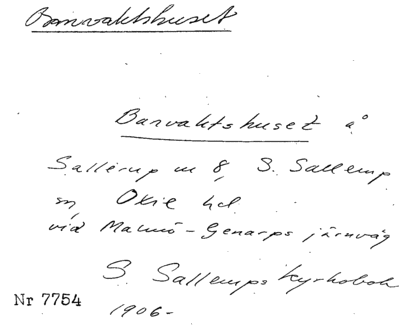 Banvaktshuset
Banvaktshuset å
Sallerup nr 8, S. Sallerup
sn, Oxie hd
vid Malmö-Genarps järnväg
S Sallerups kyrkobok
1906-
Nr 7754